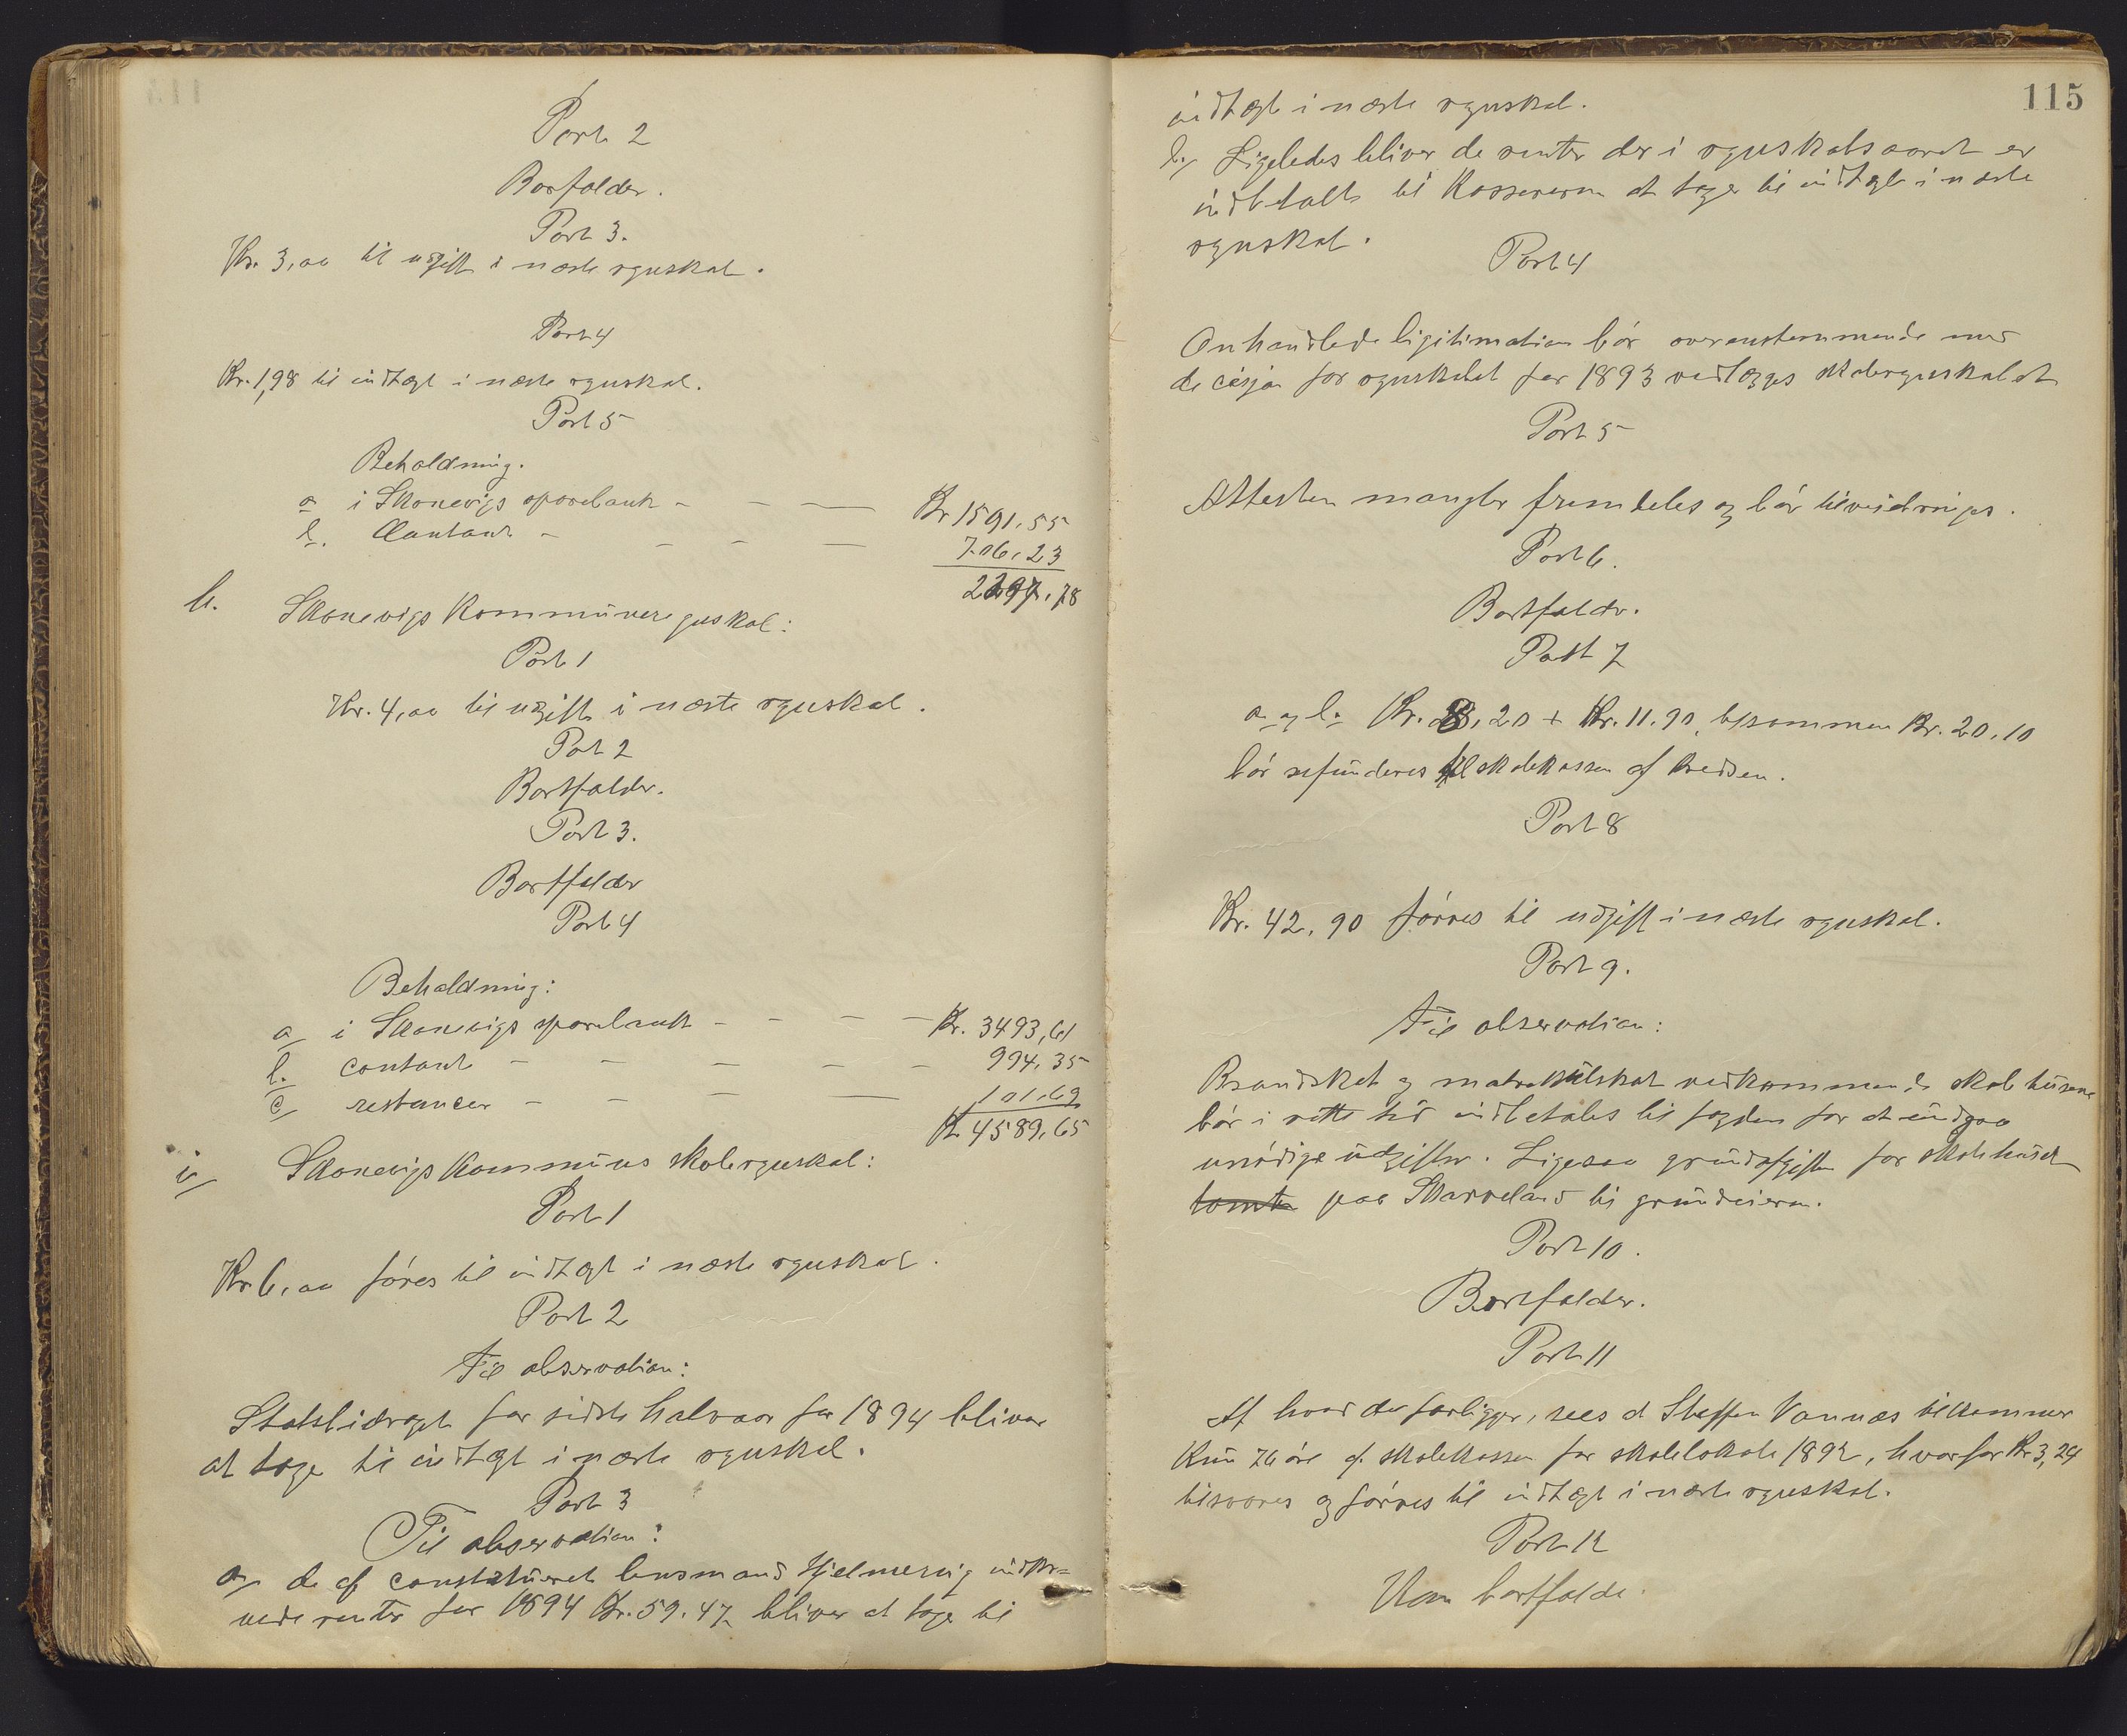 Post 2
Bortfalder.
Post 3.
Kr. 3,00 til udgift i næste rgnskab.
Post 4
Kr. 1,98 til indtægt i næste rgnskab.
Post 5
Beholdning.
a i Skonevigs sparebank - - — Kr 1591,55
b. Contant - - - — 706,23
2297,78
h. Skonevigs Kommuneregnskab:
Post 1
Kr. 4,00 til udgift i næste rgnskab.
Post 2
Bortfalder.
Post 3.
Bortfalder
Post 4
Beholdning:
a/ i Skonevigs sparebank - - - - Kr. 3493,61
b. contant - - - - - 994,35
c/ restancer - - - — 101,69
Kr 4589,65
i/ Skonevigs Kommunes skolergnskab:
Post 1
Kr 6,00 føres til indtægt i næste rgnskab.
Post 2
Til observation:
Statsbidraget for sidste halvaar for 1894 bliver
at tage til indtægt i næste rgnskab.
Post 3
Til observation:
a/ de af constitueret lensmand Hjelmervig indkr=
vede renter for 1894 Kr. 59.47 bliver at tage til
115
indtægt i næste rgnskab.
b./ Ligeledes bliver de renter der i rgnskabsaaret er
indbetalt til Kassereren at tage til indtægt i næste
rgnskab.
Post 4
Omhandlede ligitimation bør overenstemmende med
decisjon for rgnskabet for 1893 vedlægges skolergnskabet
Post 5
Attesten mangler fremdeles og bør tilveiebringes.
Post 6.
Bortfalder.
Post 7
a og b. Kr. 8,20 + Kr. 11.90, tilsammen Kr. 20,10
bør refunderes til skolekassen af kredsen.
Post 8
Kr. 42,90 førres til udgift i næste rgnskab.
Post 9.
Til observation:
Brandskat og matrikulskat vedkommende skolehusene
bør i rette tid indbetales til fogden for at undgaa
unødige udgifter. Ligesaa grundafgiften for skolehuset
tomten paa Skarveland til grundeieren.
Post 10.
Bortfalder.
Post 11
Af hvad der forligger, sees at Steffen Vannæs tilkommer
Kun 76 øre af skolekassen for skolelokale 1892, hvorfor Kr 3,24
tilsvares og førres til indtægt i næste rgnskab.
Post 12
Kan bortfalde.